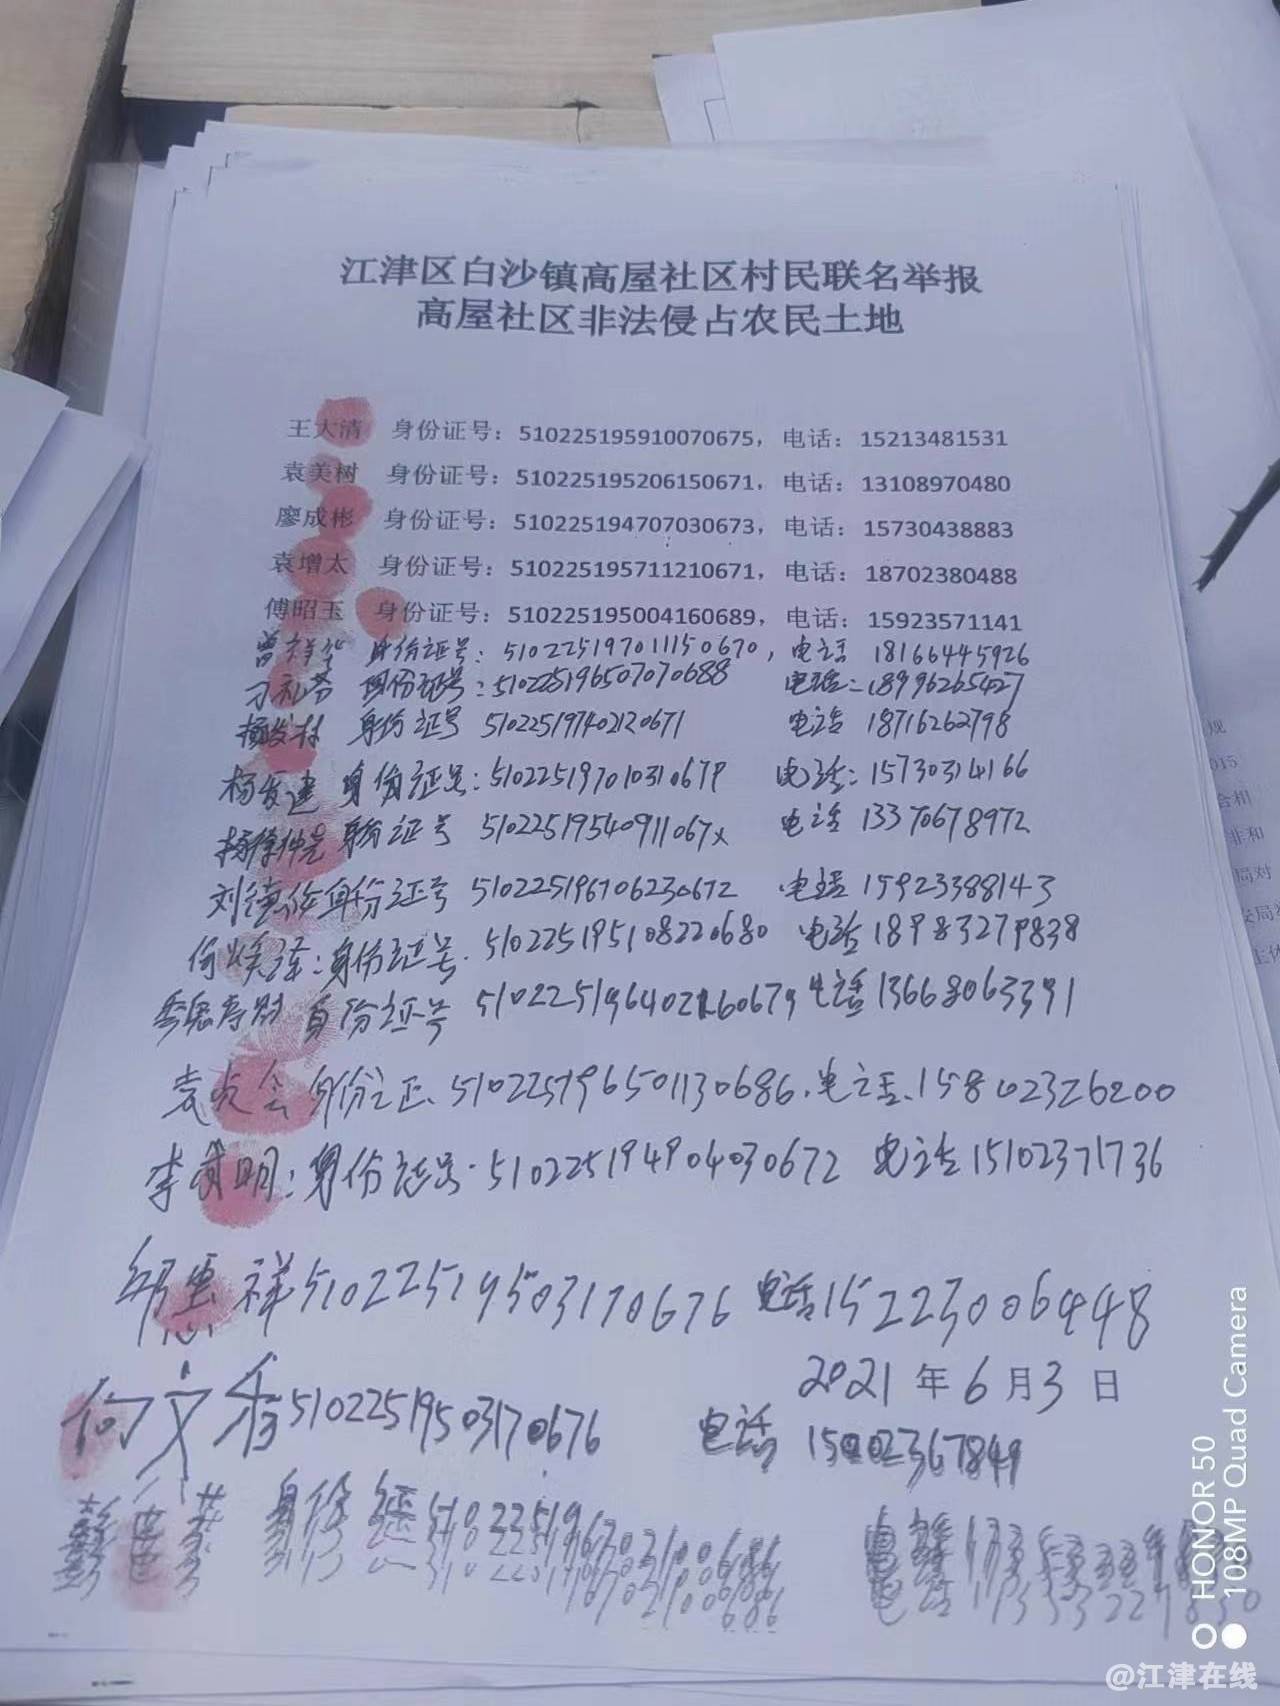 江津区白沙镇高屋社区村民联名举报
高屋社区非法侵占农民土地
王大清 身份证号：510225195910070675，电话：15213481531
袁美树 身份证号：510225195206150671，电话：13108970480
廖成彬 身份证号：510225194707030673，电话：15730438883
袁增太 身份证号：510225195711210671，电话：18702380488
傅昭玉 身份证号：510225195004160689，电话：15923571141
身份证号：510225197011150670，电话 18166445926
刁礼芬 身份证号：510225196507070688 电话：18996265427
杨发林 身份证号 510225197402120671 电话 18716262798
杨发建 身份证号：51022519701031067P 电话：15730314166
身份证号 51022519540911067X 电话 13370678972
刘德 身份证号 510225196706230672 电话 15923388143
何 身份证号. 510225195108220680 电话 18983279838
身份证号 电话 13668063391
袁贞会 身份证. 510225196501130686. 电话. 15802326200
李 明：身份证号. 510225194904030672 电话 15102371736
祥 51022519503170676 电话 15223006448
2021年6月3日
何文秀 51022519503170676 电话
身份证
规
015
合相
非和
局对
安局
主体
HONOR 50
108MP Quad Camera
@江津在线